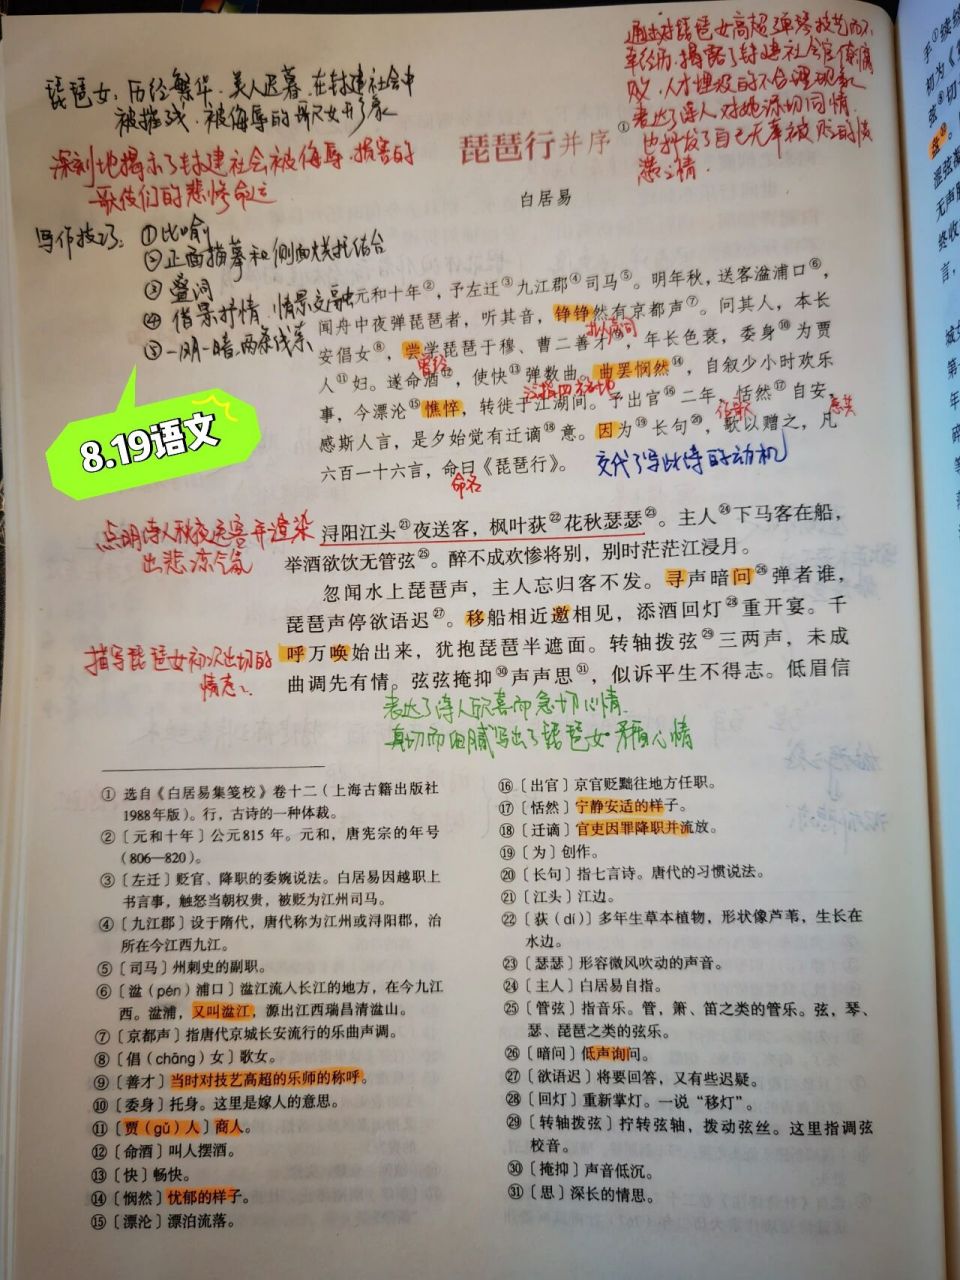 通过对琵琶女高超弹琴技艺而不
幸经历,揭露了封建社会官僚腐
败,人才埋没的不合理现象
表达了诗人对她深切同情,
也抒发了自己无辜被贬的愤
懑之情.
琵琶女:历经繁华.美人迟暮.在封建社会中
被摧残.被侮辱的歌女形象
深刻地揭示了封建社会被侮辱.损害的
歌伎们的悲惨命运
琵琶行并序①
白居易
写作技巧:①比喻
②正面描摹和侧面烘托结合
③叠词
④借景抒情.情景交融
⑤一明一暗.两条线索
8.19语文
元和十年②,予左迁③九江郡④司马⑤。明年秋,送客湓浦口⑥,
闻舟中夜弹琵琶者,听其音,铮铮然有京都声⑦。问其人,本长
安倡女⑧,尝学琵琶于穆、曹二善才⑨,年长色衰,委身⑩为贾
曾经
人⑪妇。遂命酒⑫,使快⑬弹数曲。曲罢悯然⑭,自叙少小时欢乐
事,今漂沦⑮憔悴,转徙于江湖间。予出官⑯二年,恬然⑰自安,
感斯人言,是夕始觉有迁谪⑱意。因为⑲长句⑳,歌以赠之,凡
六百一十六言,命曰《琵琶行》。
命名
交代了写此诗的动机
点明诗人秋夜送客并渲染
出悲凉气氛
浔阳江头㉑夜送客,枫叶荻㉒花秋瑟瑟㉓。主人㉔下马客在船,
举酒欲饮无管弦㉕。醉不成欢惨将别,别时茫茫江浸月。
忽闻水上琵琶声,主人忘归客不发。寻声暗问㉖弹者谁,
琵琶声停欲语迟㉗。移船相近邀相见,添酒回灯㉘重开宴。千
呼万唤始出来,犹抱琵琶半遮面。转轴拨弦㉙三两声,未成
曲调先有情。弦弦掩抑㉚声声思㉛,似诉平生不得志。低眉信
描写琵琶女初次出场的
情态
表达了诗人欣喜而急切心情.
真切而细腻写出了琵琶女矛盾心情
① 选自《白居易集笺校》卷十二(上海古籍出版社
1988年版)。行,古诗的一种体裁。
②〔元和十年〕公元815年。元和,唐宪宗的年号
(806—820)。
③〔左迁〕贬官、降职的委婉说法。白居易因越职上
书言事,触怒当朝权贵,被贬为江州司马。
④〔九江郡〕设于隋代,唐代称为江州或浔阳郡,治
所在今江西九江。
⑤〔司马〕州刺史的副职。
⑥〔湓(pén)浦口〕湓江流入长江的地方,在今九江
西。湓浦,又叫湓江,源出江西瑞昌清湓山。
⑦〔京都声〕指唐代京城长安流行的乐曲声调。
⑧〔倡(chāng)女〕歌女。
⑨〔善才〕当时对技艺高超的乐师的称呼。
⑩〔委身〕托身。这里是嫁人的意思。
⑪〔贾(gǔ)人〕商人。
⑫〔命酒〕叫人摆酒。
⑬〔快〕畅快。
⑭〔悯然〕忧郁的样子。
⑮〔漂沦〕漂泊流落。
⑯〔出官〕京官贬黜往地方任职。
⑰〔恬然〕宁静安适的样子。
⑱〔迁谪〕官吏因罪降职并流放。
⑲〔为〕创作。
⑳〔长句〕指七言诗。唐代的习惯说法。
㉑〔江头〕江边。
㉒〔荻(dí)〕多年生草本植物,形状像芦苇,生长在
水边。
㉓〔瑟瑟〕形容微风吹动的声音。
㉔〔主人〕白居易自指。
㉕〔管弦〕指音乐。管,箫、笛之类的管乐。弦,琴、
瑟、琵琶之类的弦乐。
㉖〔暗问〕低声询问。
㉗〔欲语迟〕将要回答,又有些迟疑。
㉘〔回灯〕重新掌灯。一说“移灯”。
㉙〔转轴拨弦〕拧转弦轴,拨动弦丝。这里指调弦
校音。
㉚〔掩抑〕声音低沉。
㉛〔思〕深长的情思。